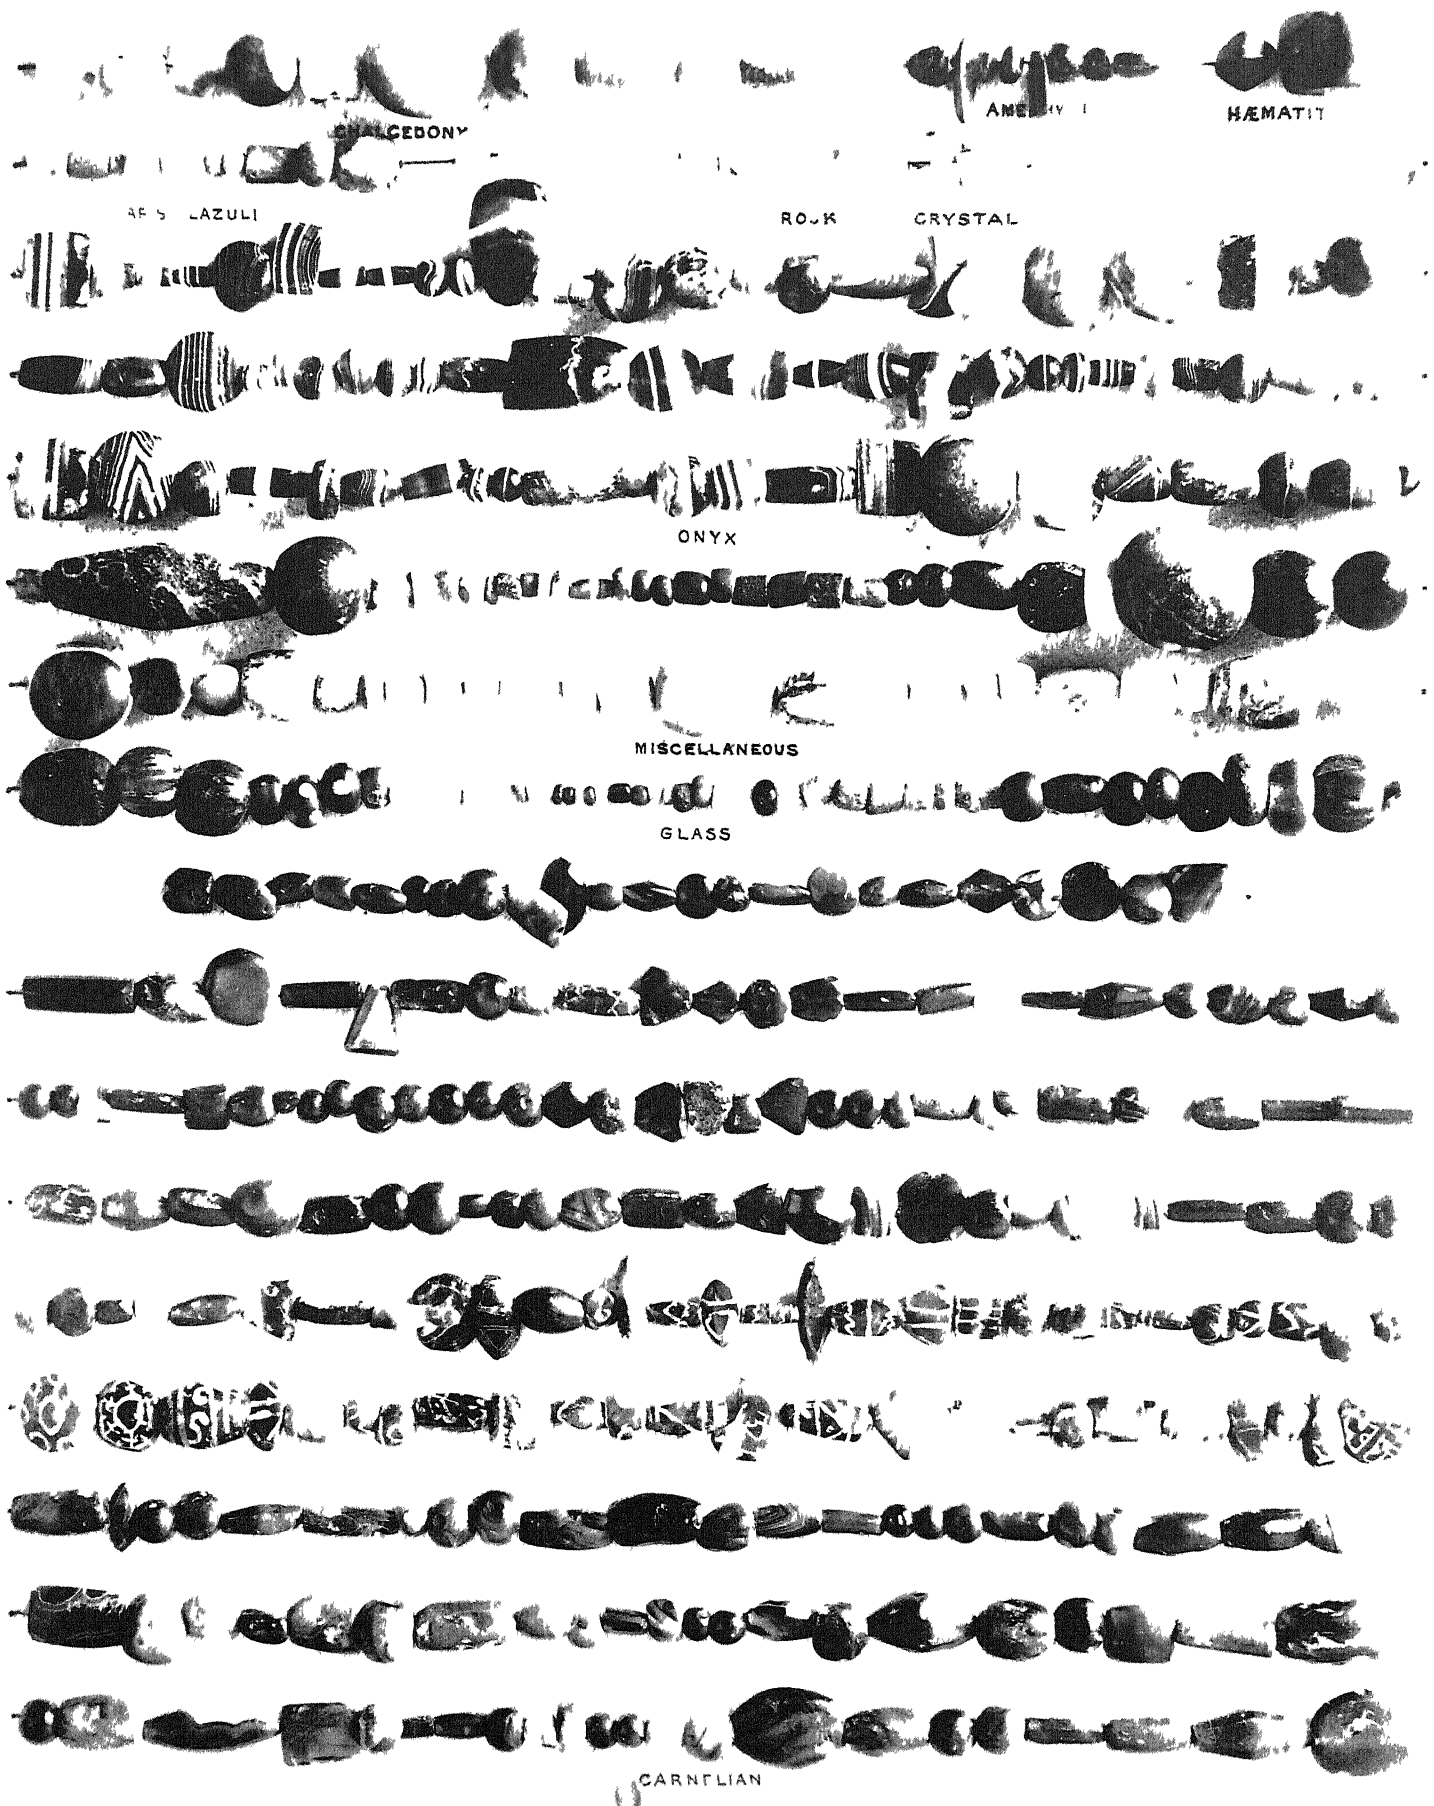 CHALCEDONY
HÆMATIT
LAZULI
CRYSTAL
ONYX
MISCELLANEOUS
GLASS
CARNELIAN